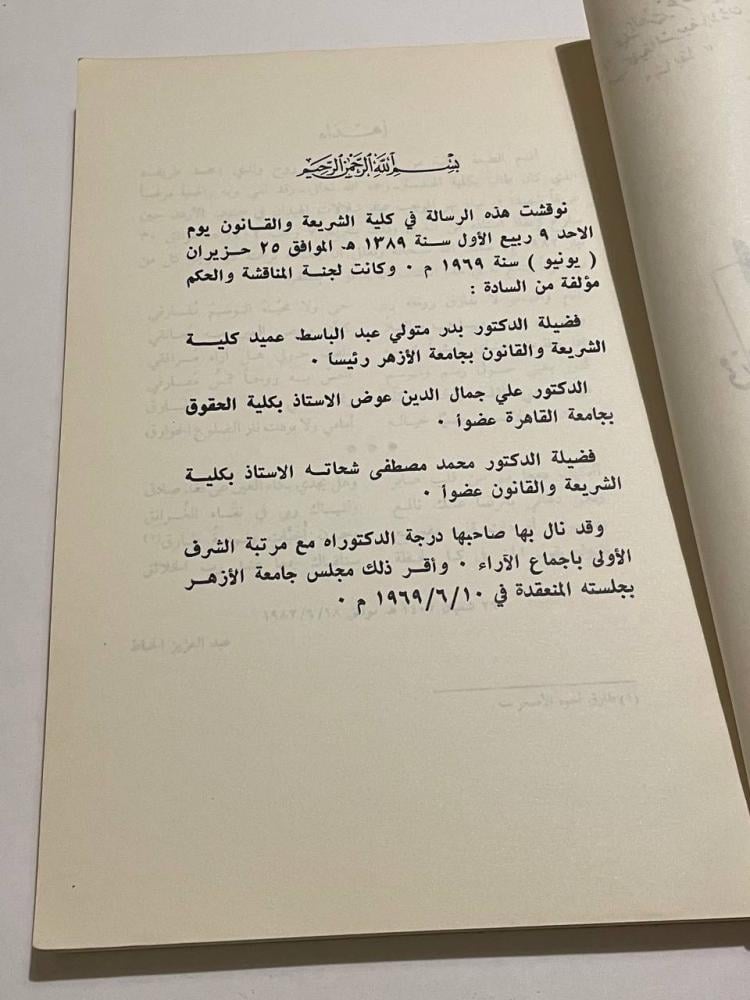 بسم الله الرحمن الرحيم
نوقشت هذه الرسالة في كلية الشريعة والقانون يوم
الاحد ٩ ربيع الأول سنة ١٣٨٩ هـ الموافق ٢٥ حزيران
( يونيو ) سنة ١٩٦٩ م ٠ وكانت لجنة المناقشة والحكم
مؤلفة من السادة :
فضيلة الدكتور بدر متولي عبد الباسط عميد كليـة
الشريعة والقانون بجامعة الأزهر رئيساً ٠
الدكتور علي جمال الدين عوض الاستاذ بكلية الحقوق
بجامعة القاهرة عضواً ٠
فضيلة الدكتور محمد مصطفى شحاته الاستاذ بكليـة
الشريعة والقانون عضواً ٠
وقد نال بها صاحبها درجة الدكتوراه مع مرتبة الشرف
الأولى باجماع الآراء ٠ وأقر ذلك مجلس جامعة الأزهـر
بجلسته المنعقدة في ١٩٦٩/٦/١٠ م ٠